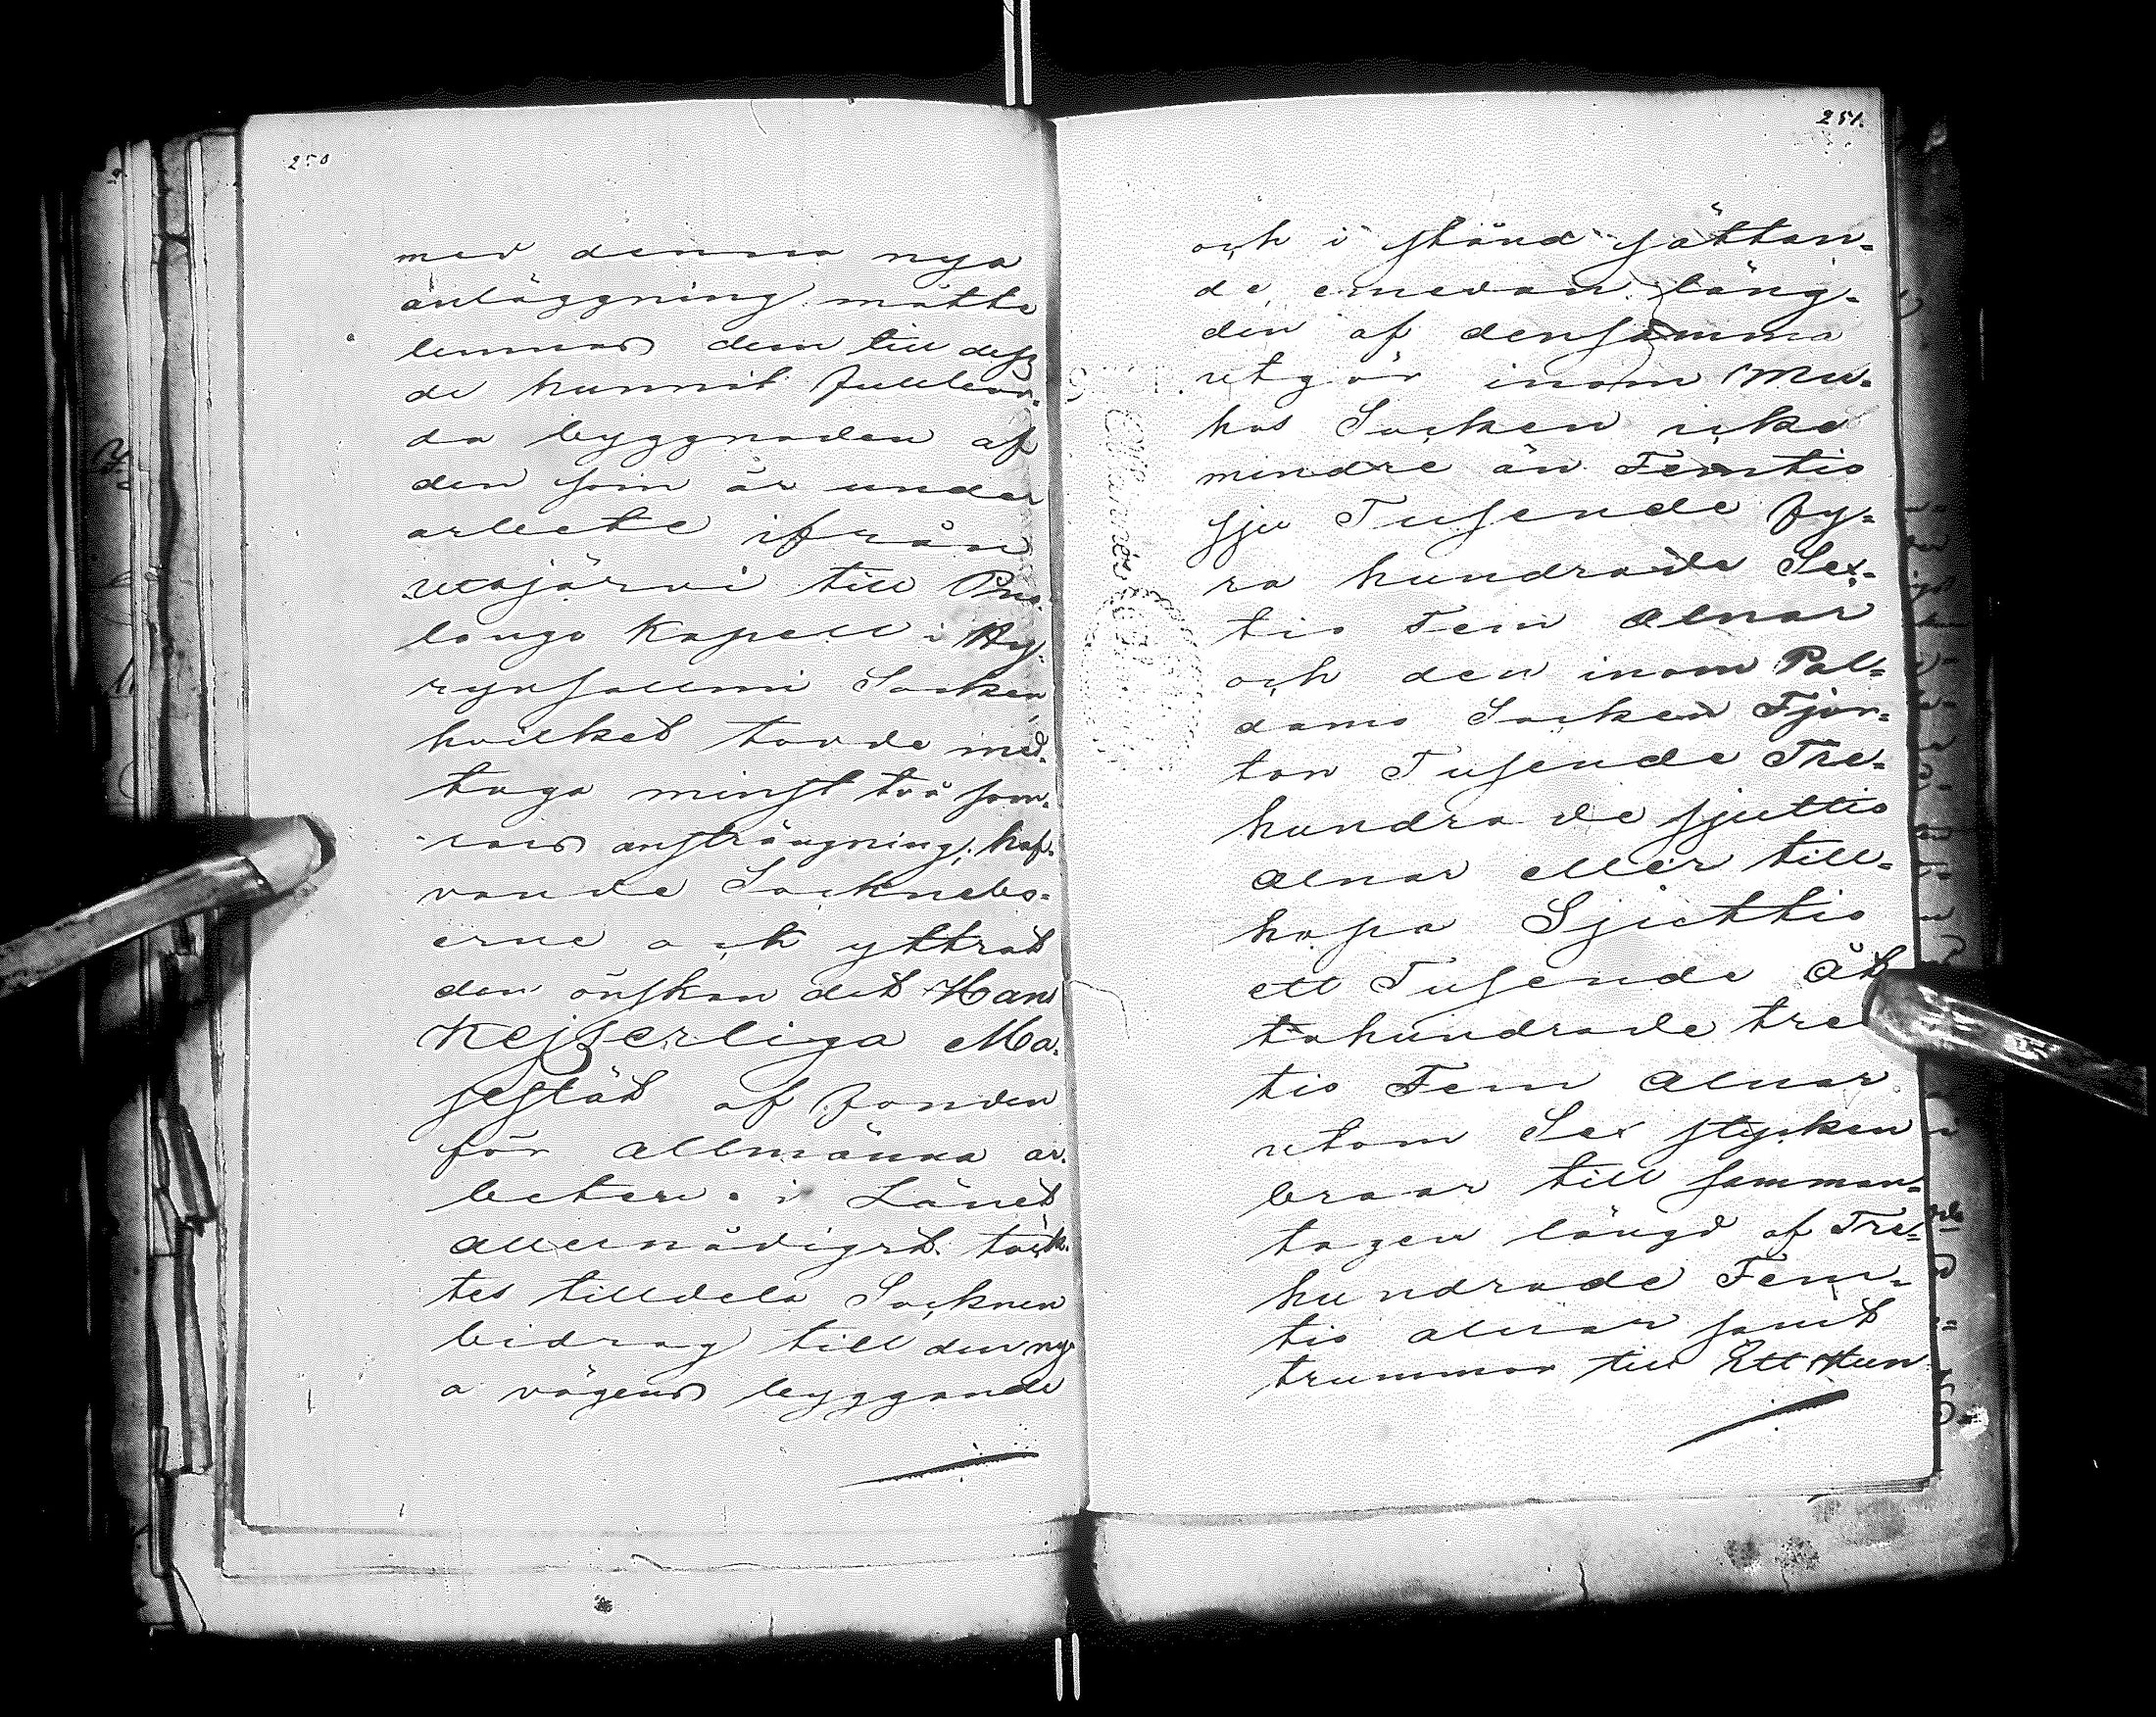 250
med denna nya
anläggning måtte
lemnas dem till dess
de hunnit fullbor-
da byggnaden af
den som är under
arbete ifrån
Utajärvi till Puo-
lango Kapell i Hy-
rynsallmi Socken,
hvilket torde med-
taga minst två som-
rars ansträngning; haf-
vande Sockneboerne
erne ock yttrat
den önskan det Hans
Kejserliga Ma-
jestät af fonden
för allmänna ar-
beten i Länet
allernådigst täck-
tes tilldela Socknen
bidrag till den ny-
a vägens byggande
251.
och i stånd sättan-
de, emedan läng-
den af densamma
utgör inom Mu-
hos Socken icke
mindre än Femtio
sju Tusende fy-
ra hundrade Sex-
tio Fem alnar
och den inom Pal-
damo Socken Fjor-
ton Tusende Tre-
hundrade sjuttio
alnar eller till-
hopa Sjuttio
ett Tusende Åt
tahundrade tre
tio Fem alnar
utom Sex stycken
broar till samman-
tagen längd af Tre-
hundrade Fem-
tio alnar samt
trummor till Ett Hun